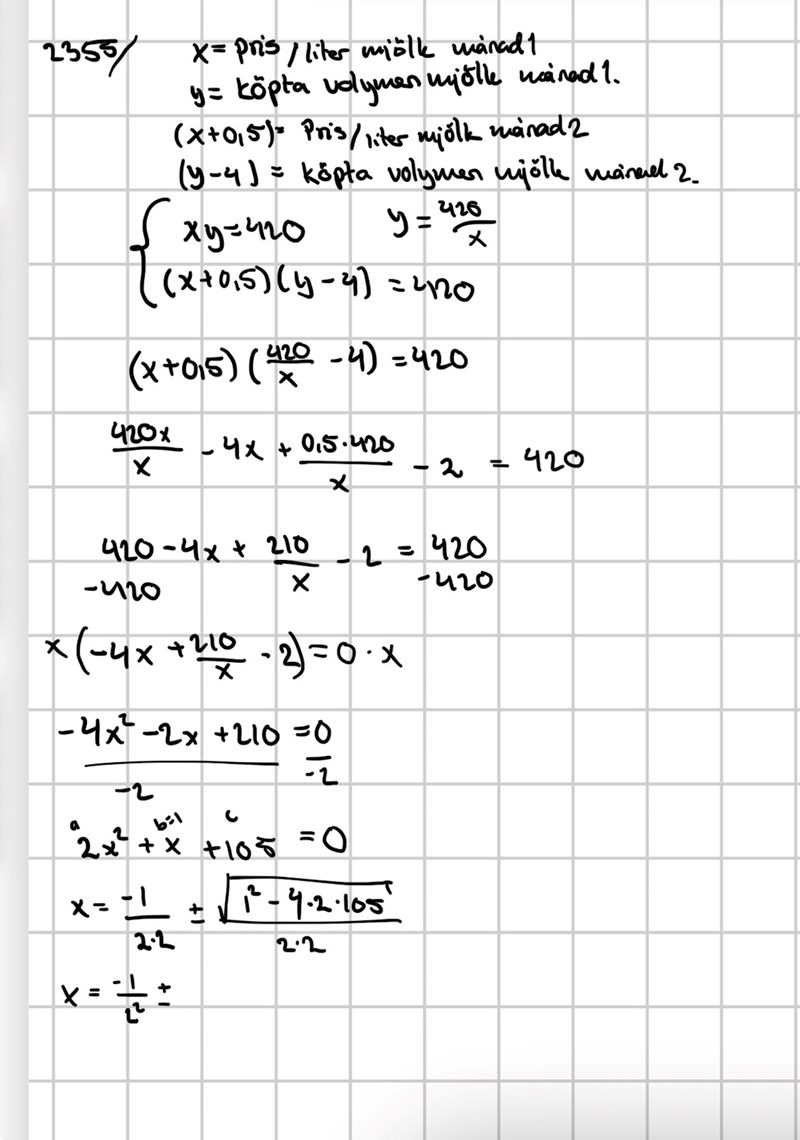 2355/ x = pris/liter mjölk månad 1
y = köpta volymen mjölk månad 1.
(x+0,5) = Pris/liter mjölk månad 2
(y-4) = köpta volymen mjölk månad 2.
{ xy = 420 y = 420/x
(x+0,5)(y-4) = 420
(x+0,5)(420/x - 4) = 420
420x/x - 4x + 0,5·420/x - 2 = 420
420 - 4x + 210/x - 2 = 420
-420 -420
x(-4x + 210/x - 2) = 0 · x
-4x² - 2x + 210 = 0
-2 -2
a b=1 c
2x² + x + 105 = 0
x = -1/2·2 ± √(1² - 4·2·105)/2·2
x = -1/2² ±